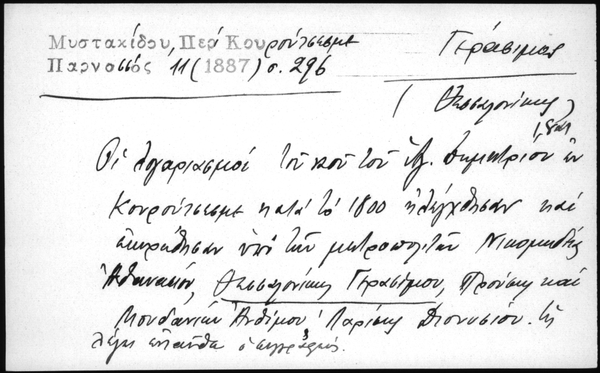 Μυστακίδου, Περί Κουρούτσεσμε
Παρνασσός 11 (1887) σ. 296
Γεράσιμος
(Θεσσαλονίκης)
Οἱ λογαριασμοί τοῦ ναοῦ τοῦ Ἁγ. Δημητρίου ἐν
Κουρούτσεσμε κατά τό 1800 ἠλέγχθησαν καί
ἐπεκυρώθησαν ὑπό τῶν μητροπολιτῶν Νικομηδείας
Ἀθανασίου, Θεσσαλονίκης Γερασίμου, Προύσης καί
Μουδανιῶν Ἀνθίμου, Λαρίσης Διονυσίου. ὡς
λέγει ἐνταῦθα ὁ συγγραφεύς.